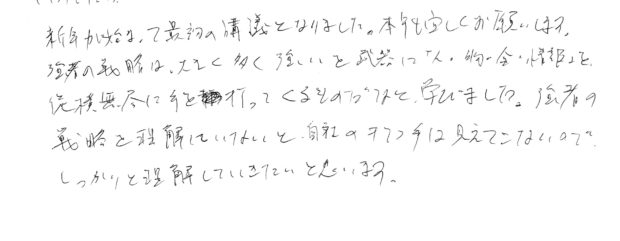 新年が始まって最初の講議となりました。本年も宜しくお願いします。
強者の戦略は、大きく多く強いを武器に「人・物・金・情報」を
縦横無尽に手を打ってくるものだなと、学びました。強者の
戦略を理解していないと、自社の打つ手は見えてこないので、
しっかりと理解していきたいと思います。